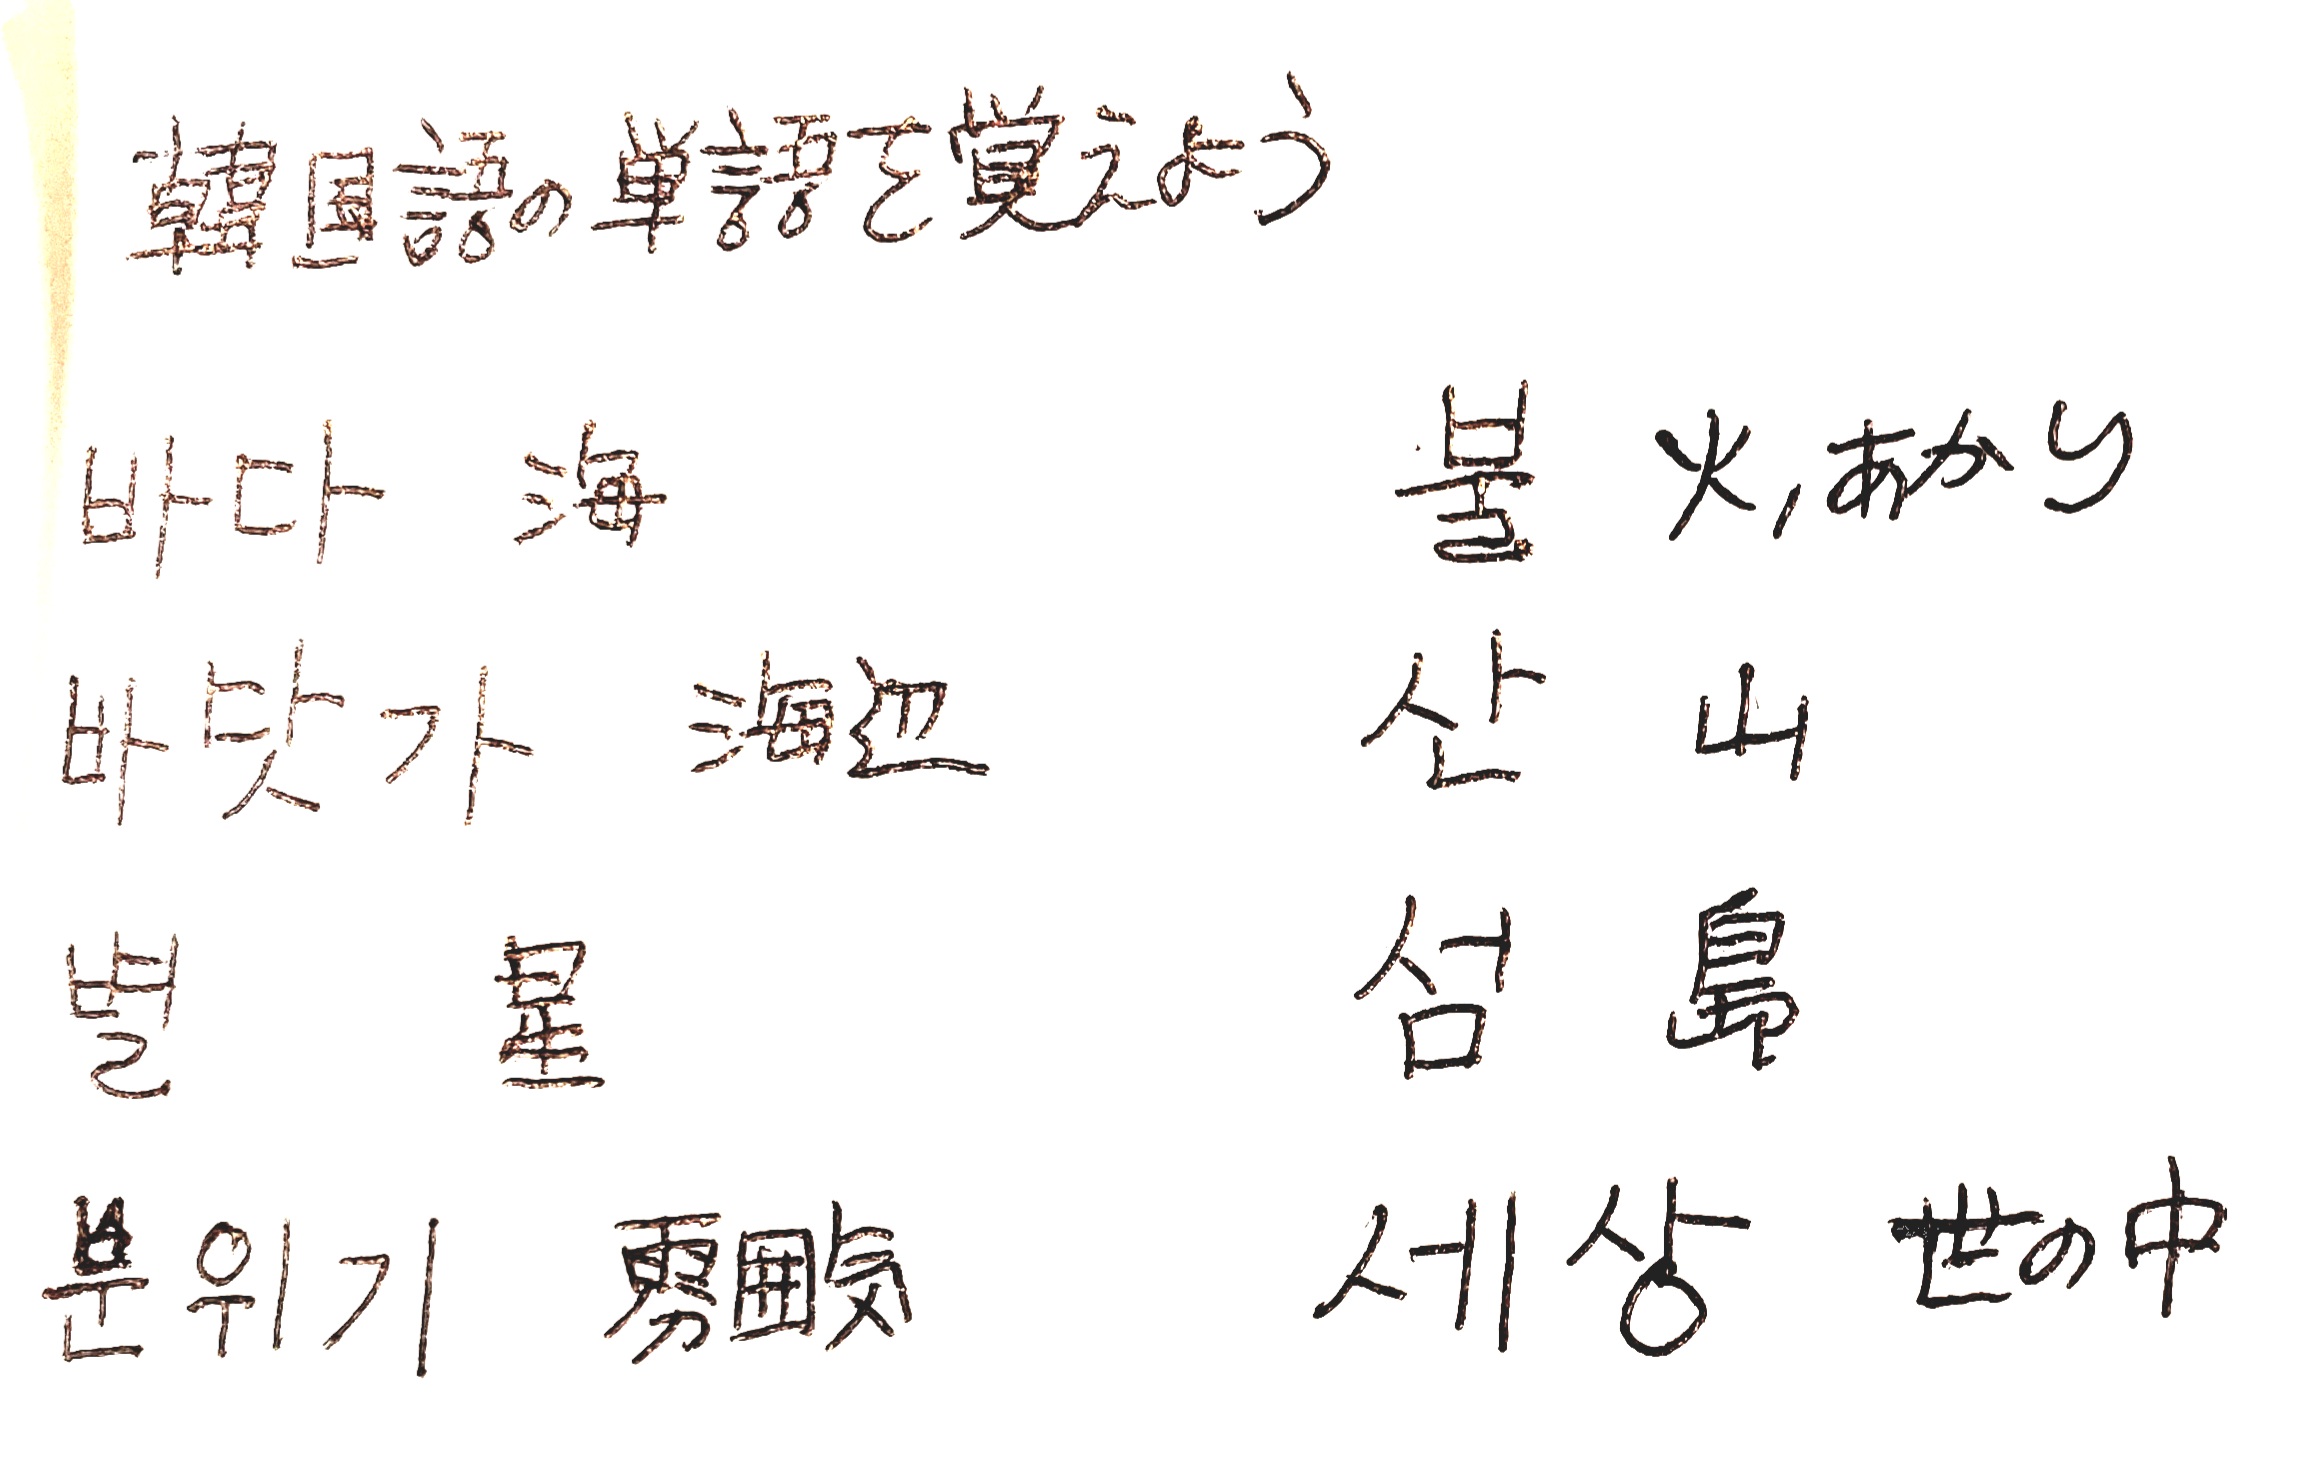 韓国語の単語を覚えよう
바다 海
바닷가 海辺
별 星
분위기 雰囲気
불 火,あかり
산 山
섬 島
세상 世の中